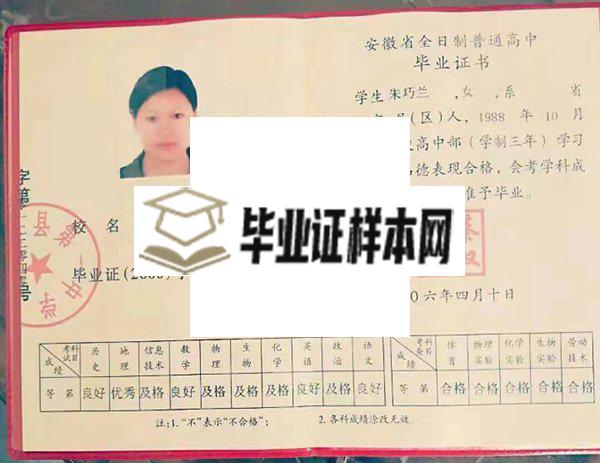 安徽省全日制普通高中
毕业证书
学生 朱巧兰 ,女,系 省
(区)人, 1988 年 10 月
高中部(学制三年)学习
德表现合格, 会考学科成
准予毕业。
校名
毕业证样本网
毕业证(
六年四月十日
字第
号
县第一中学
考试科目 历史 地理 信息技术 数学 物理 生物 化学 英语 政治 语文
成绩
等第 良好 优秀 及格 良好 及格 及格 及格 良好 及格 良好
考查科目 体育 物理实验 化学实验 生物实验 劳动技术
成绩
等第 合格 合格 合格 合格 合格
注:1. “不”表示“不合格”; 2. 各科成绩涂改无效.